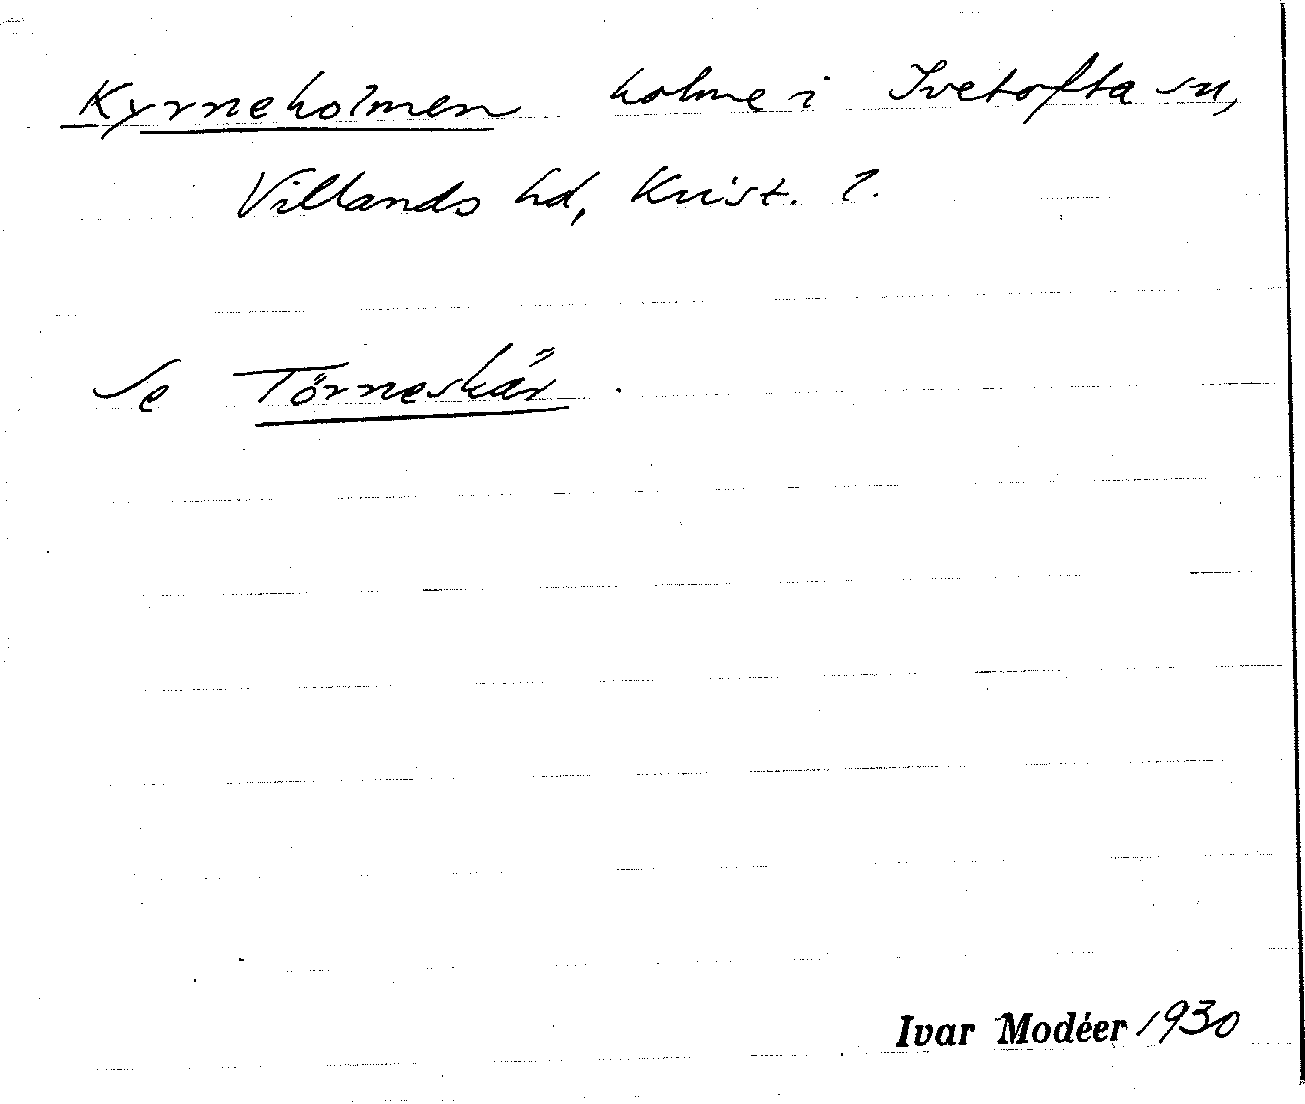 Kyrneholmen holme i Ivetofta sn,
Villands hd, Krist. l.
Se Törneskär.
Ivar Modéer 1930